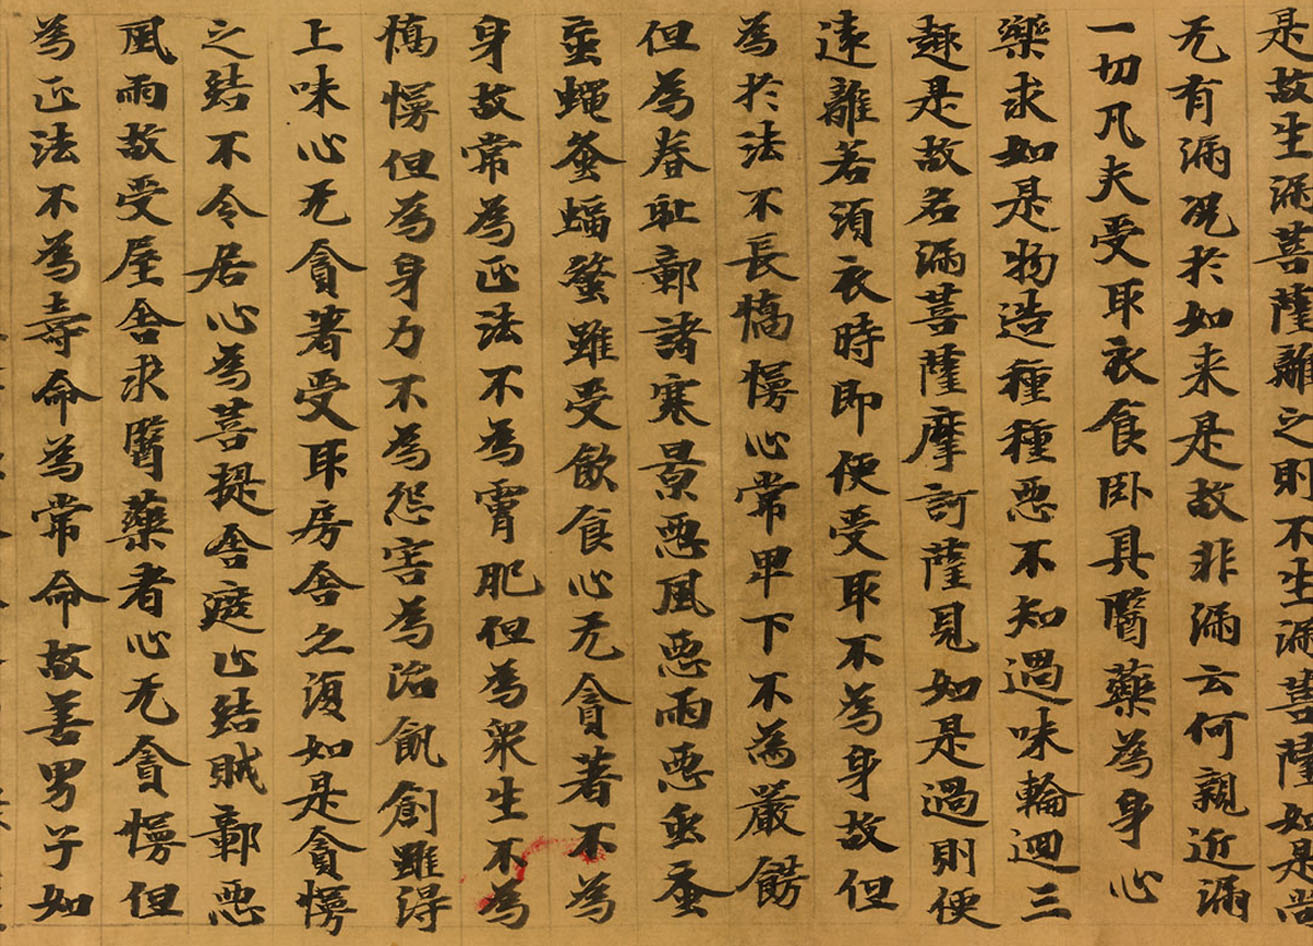 是故生漏菩薩離之則不生漏菩薩如是尚
无有漏況於如来是故非漏云何親近漏
一切凡夫受取衣食卧具醫藥為身心
樂求如是物造種種惡不知過味輪迴三
趣是故名漏菩薩摩訶薩見如是過則便
遠離若須衣時即便受取不為身故但
為於法不長憍慢心常卑下不為嚴餝
但為羞耻鄣諸寒暑惡風惡雨惡虫蚉
䖟蠅蚤蝮螫雖受飲食心无貪著不為
身故常為正法不為膚肥但為衆生不為
憍慢但為身力不為怨害為治飢創雖得
上味心无貪著受取房舍亦復如是貪慢
之結不令居心為菩提舍遮止結賊鄣惡
風雨故受屋舍求醫藥者心无貪慢但
為正法不為壽命為常命故善男子如